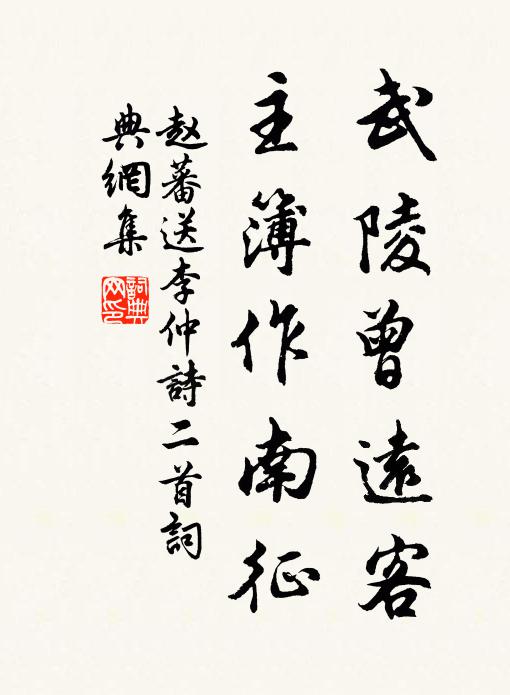 武陵曾遠客
主簿作南征
赵蕃送李仲詩二首詞
典網集
詞典
网印